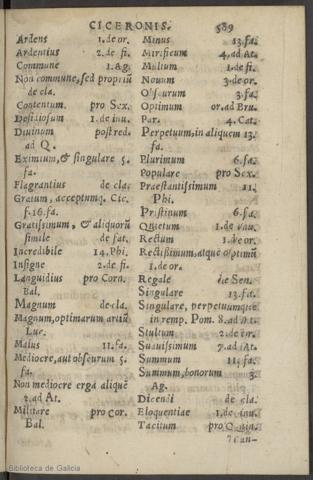 CICERONIS. 589
Ardens 1. de or.
Ardentius 2. de fi.
Commune 1. Ag.
Non commune, sed propriũ
de cla.
Contentum. pro Sex.
Desidiosum 1. de inu.
Diuinum post red.
ad Q.
Eximium, & singulare 5.
fa.
Flagrantius de cla.
Gratum, acceptumq. Cic.
f. 16. fa.
Gratissimum, & aliquorũ
simile de fat.
Incredibile 14. Phi.
Insigne 2. de fi.
Languidius pro Corn.
Bal.
Magnum de cla.
Magnum, optimarum artiũ
Luc.
Maius 11. fa.
Mediocre, aut obscurum 5.
fa.
Non mediocre erga aliquẽ
2. ad At.
Militare pro Cor.
Bal.
Minus 13. fa.
Mirificum 4. ad At.
Multum 1. de fi.
Nouum 3. de or.
Obscurum 3. fa.
Optimum or. ad Bru.
Par. 4. Cat.
Perpetuum, in aliquem 13.
fa.
Plurimum 6. fa.
Populare pro Sex.
Praestantissimum 11.
Phi.
Pristinum 6. fa.
Quietum 1. de
Rectum 1. de or.
Rectissimum, atque optimũ
1. de or.
Regale de Sen.
Singulare 13. fa.
Singulare, perpetuumque
in remp. Pom. 8. ad At.
Stultum 2. de
Suauissimum 7. ad At.
Summum 11. fa.
Summum, bonorum 3.
Ag.
Dicendi de cla.
Eloquentiae 1. de inu.
Tacitum pro
Biblioteca de Galicia